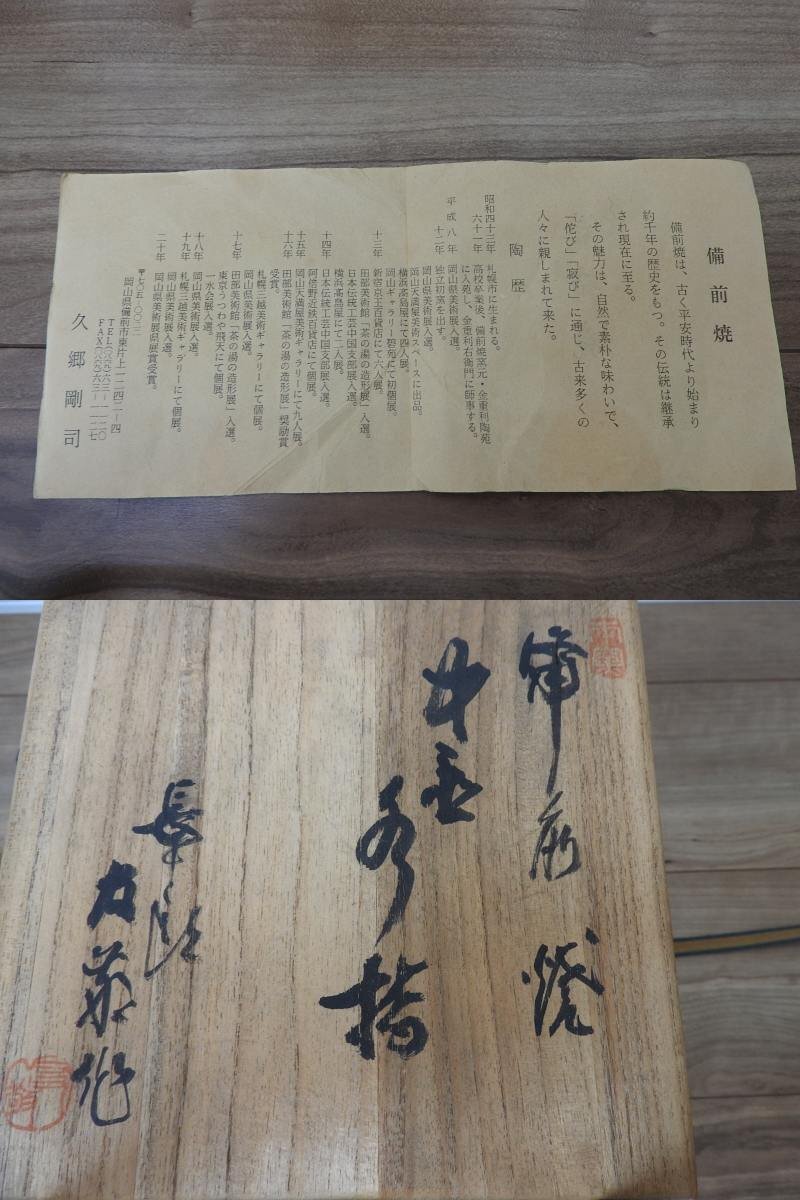 備前焼
備前焼は、古く平安時代より始まり
約千年の歴史をもつ。その伝統は継承
され現在に至る。
その魅力は、自然で素朴な味わいで、
「侘び」「寂び」に通じ、古来多くの
人々に親しまれて来た。
陶歴
昭和四十二年 札幌市に生まれる。
六十一年 高校卒業後、備前焼窯元・金重利陶苑
に入苑し、金重利右衛門に師事する。
平成八年 岡山県美術展入選。
十二年 独立初窯を出す。
岡山県美術展入選。
岡山天満屋美術スペースに出品。
横浜高島屋にて四人展。
岡山ギャラリー碧苑にて初個展。
十三年 新宿京王百貨店にて六人展。
田部美術館「茶の湯の造形展」入選。
日本伝統工芸中国支部展入選。
横浜高島屋にて二人展。
十四年 日本伝統工芸中国支部展入選。
阿倍野近鉄百貨店にて個展。
十五年 岡山天満屋美術ギャラリーにて九人展。
十六年 田部美術館「茶の湯の造形展」奨励賞
受賞。
札幌三越美術ギャラリーにて個展。
岡山県美術展入選。
十七年 田部美術館「茶の湯の造形展」入選。
東京うつわや飛天にて個展。
一水会展入選。
十八年 岡山県美術展入選。
十九年 札幌三越美術ギャラリーにて個展。
岡山県美術展入選。
二十年 岡山県美術展県展賞受賞。
〒七〇五-〇〇二二
岡山県備前市東片上一二四二-四
TEL(〇八六九)六三-一一二〇
FAX(〇八六九)六三-一一二七
久郷剛司
備前焼
水指
作